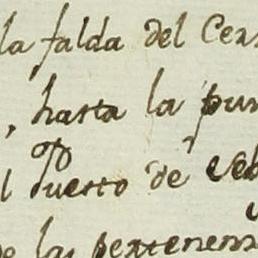 la falda del Cer
, hasta la pun
l Puerto de Ceb
de las pertenen